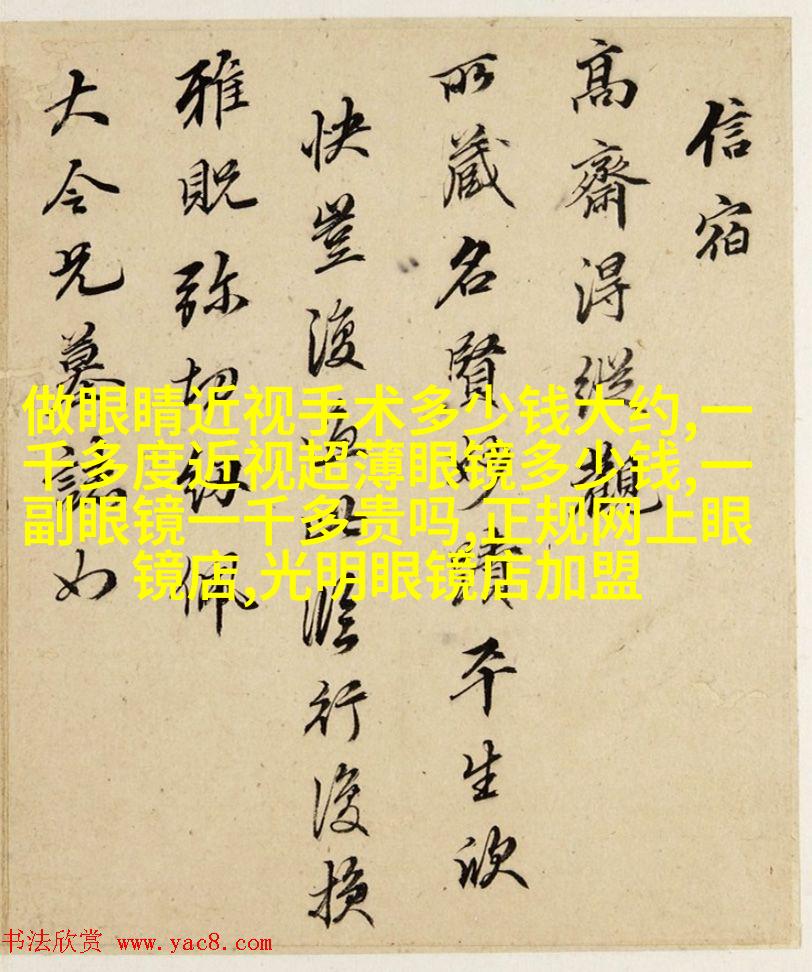 信宿
高齋得縱觀
所藏名賢妙蹟平生欣
快豈復過此臨行復損
雅貺弥切紉佩
大令兄墓誌如
做眼睛近视手术多少钱大约,一
千多度近视超薄眼镜多少钱,一
副眼镜一千多贵吗,正规网上眼
镜店,光明眼镜店加盟
书法欣赏 www.yac8.com